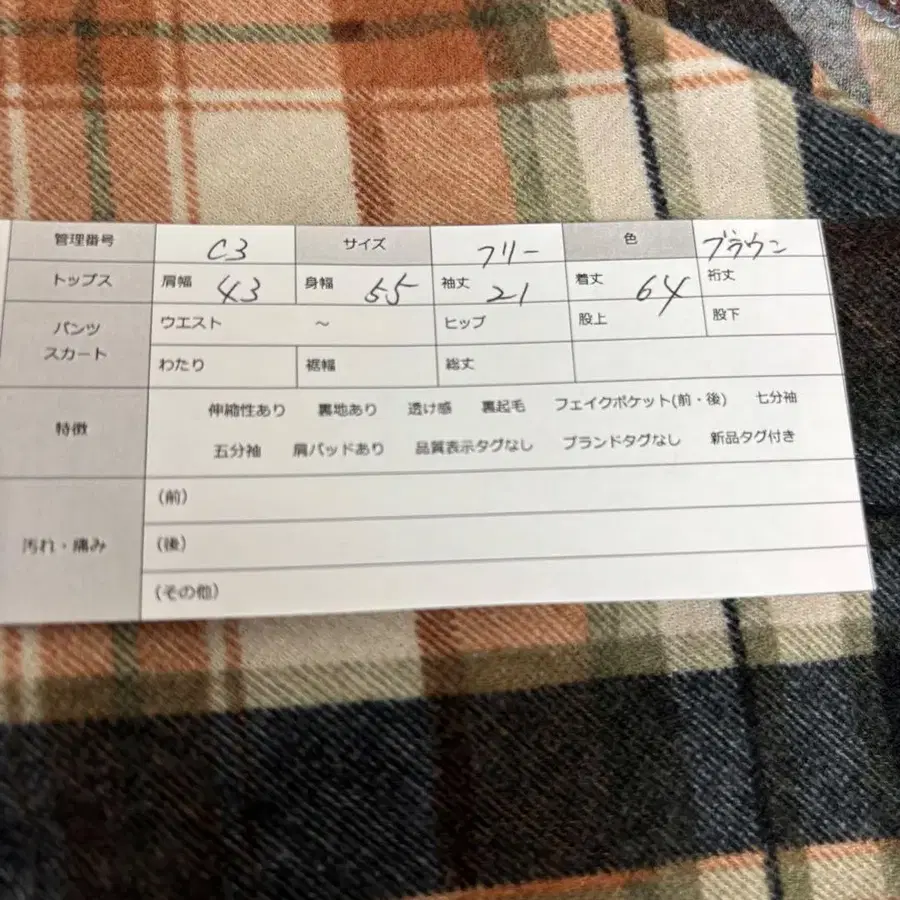 管理番号 C3 サイズ フリー 色 ブラウン
トップス 肩幅 43 身幅 55 袖丈 21 着丈 64 裄丈
パンツ ウエスト ～ ヒップ 股上 股下
スカート わたり 裾幅 総丈
特徴 伸縮性あり 裏地あり 透け感 裏起毛 フェイクポケット(前・後) 七分袖
五分袖 肩パッドあり 品質表示タグなし ブランドタグなし 新品タグ付き
汚れ・痛み (前)
(後)
(その他)